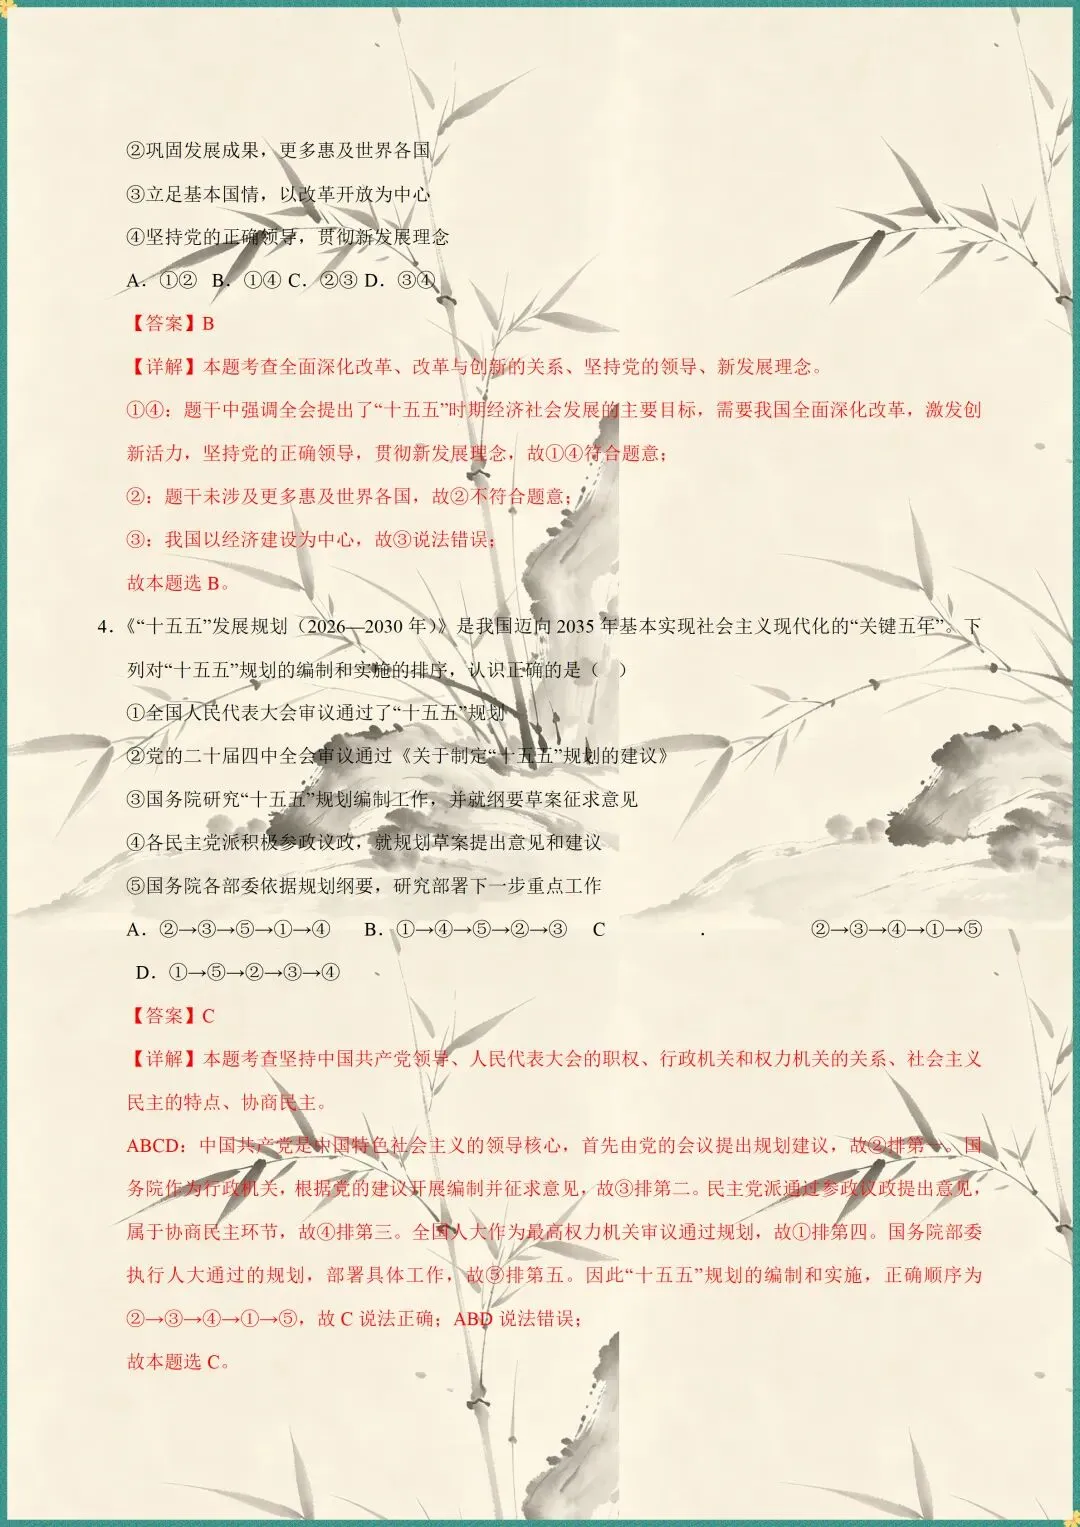 ②巩固发展成果，更多惠及世界各国
③立足基本国情，以改革开放为中心
④坚持党的正确领导，贯彻新发展理念
A．①② B．①④ C．②③ D．③④
【答案】B
【详解】本题考查全面深化改革、改革与创新的关系、坚持党的领导、新发展理念。
①④：题干中强调全会提出了“十五五”时期经济社会发展的主要目标，需要我国全面深化改革，激发创
新活力，坚持党的正确领导，贯彻新发展理念，故①④符合题意；
②：题干未涉及更多惠及世界各国，故②不符合题意；
③：我国以经济建设为中心，故③说法错误；
故本题选 B。
4．《“十五五”发展规划（2026—2030 年）》是我国迈向 2035 年基本实现社会主义现代化的“关键五年”。下
列对“十五五”规划的编制和实施的排序，认识正确的是（ ）
①全国人民代表大会审议通过了“十五五”规划
②党的二十届四中全会审议通过《关于制定“十五五”规划的建议》
③国务院研究“十五五”规划编制工作，并就纲要草案征求意见
④各民主党派积极参政议政，就规划草案提出意见和建议
⑤国务院各部委依据规划纲要，研究部署下一步重点工作
A．②→③→⑤→①→④ B．①→④→⑤→②→③ C ． ②→③→④→①→⑤
D．①→⑤→②→③→④
【答案】C
【详解】本题考查坚持中国共产党领导、人民代表大会的职权、行政机关和权力机关的关系、社会主义
民主的特点、协商民主。
ABCD：中国共产党是中国特色社会主义的领导核心，首先由党的会议提出规划建议，故②排第一。国
务院作为行政机关，根据党的建议开展编制并征求意见，故③排第二。民主党派通过参政议政提出意见，
属于协商民主环节，故④排第三。全国人大作为最高权力机关审议通过规划，故①排第四。国务院部委
执行人大通过的规划，部署具体工作，故⑤排第五。因此“十五五”规划的编制和实施，正确顺序为
②→③→④→①→⑤，故 C 说法正确；ABD 说法错误；
故本题选 C。